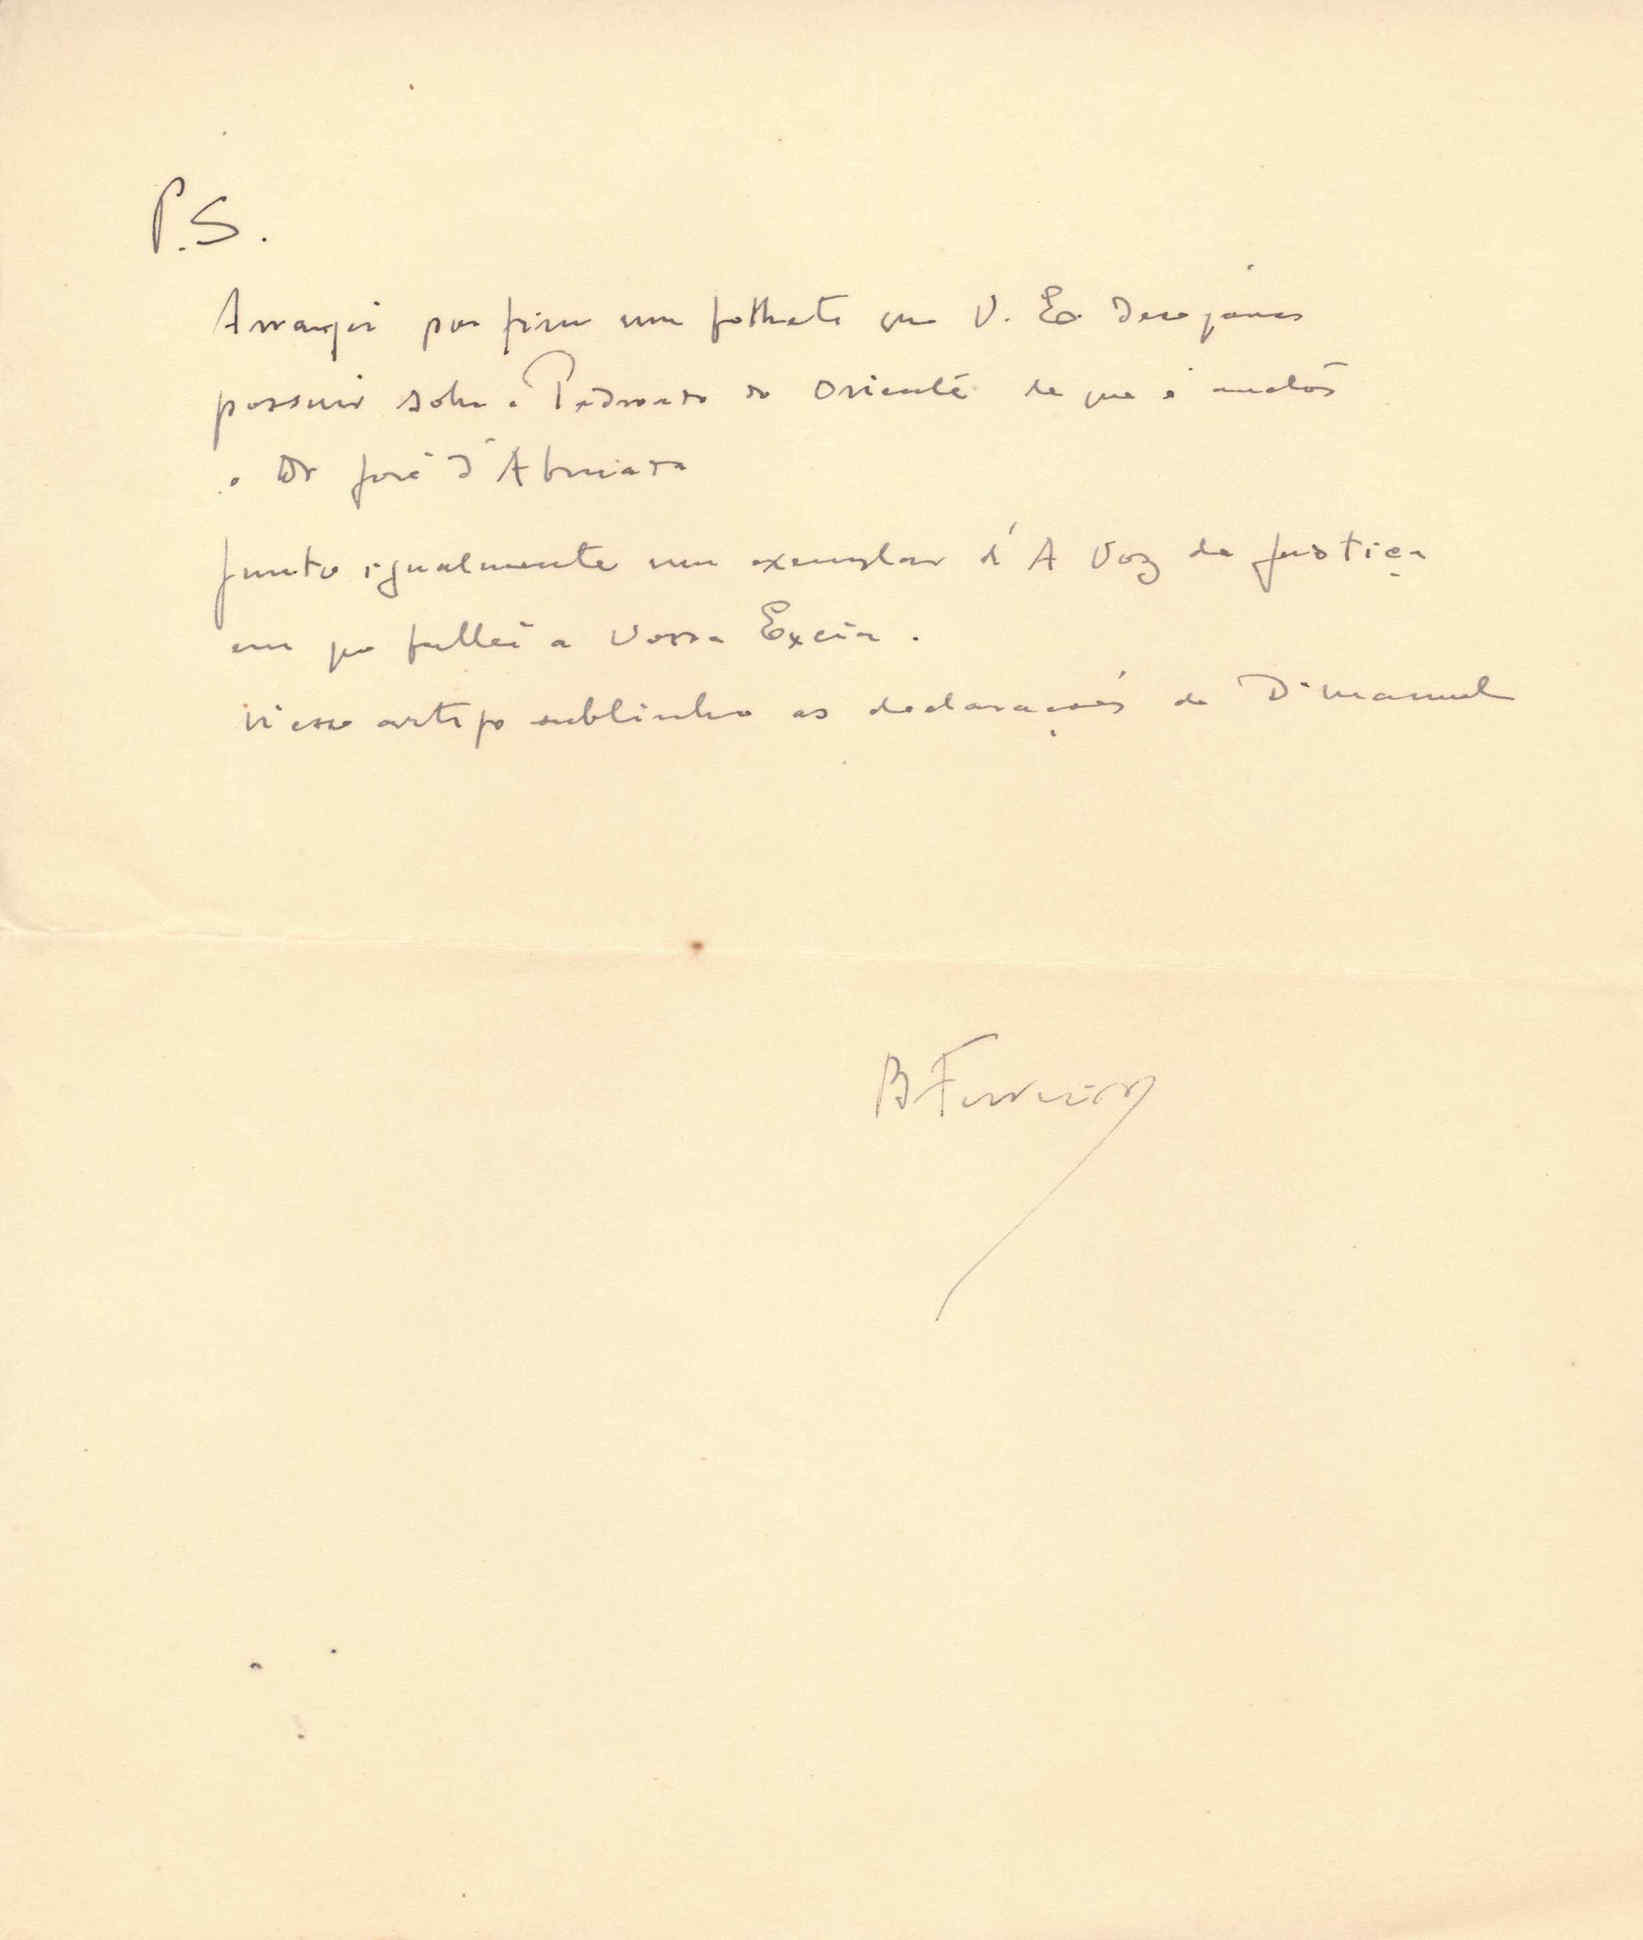 P.S.
Arranjei por fim um folheto que V. Ex desejava
possuir sobre o Padroado do Oriente de que é auctor
o Dr José d'Almada
Junto igualmente um exemplar d'A Voz da Justiça
em que fallei a Vossa Excia.
N'esse artigo sublinho as declarações de D. Manuel
B Ferreira